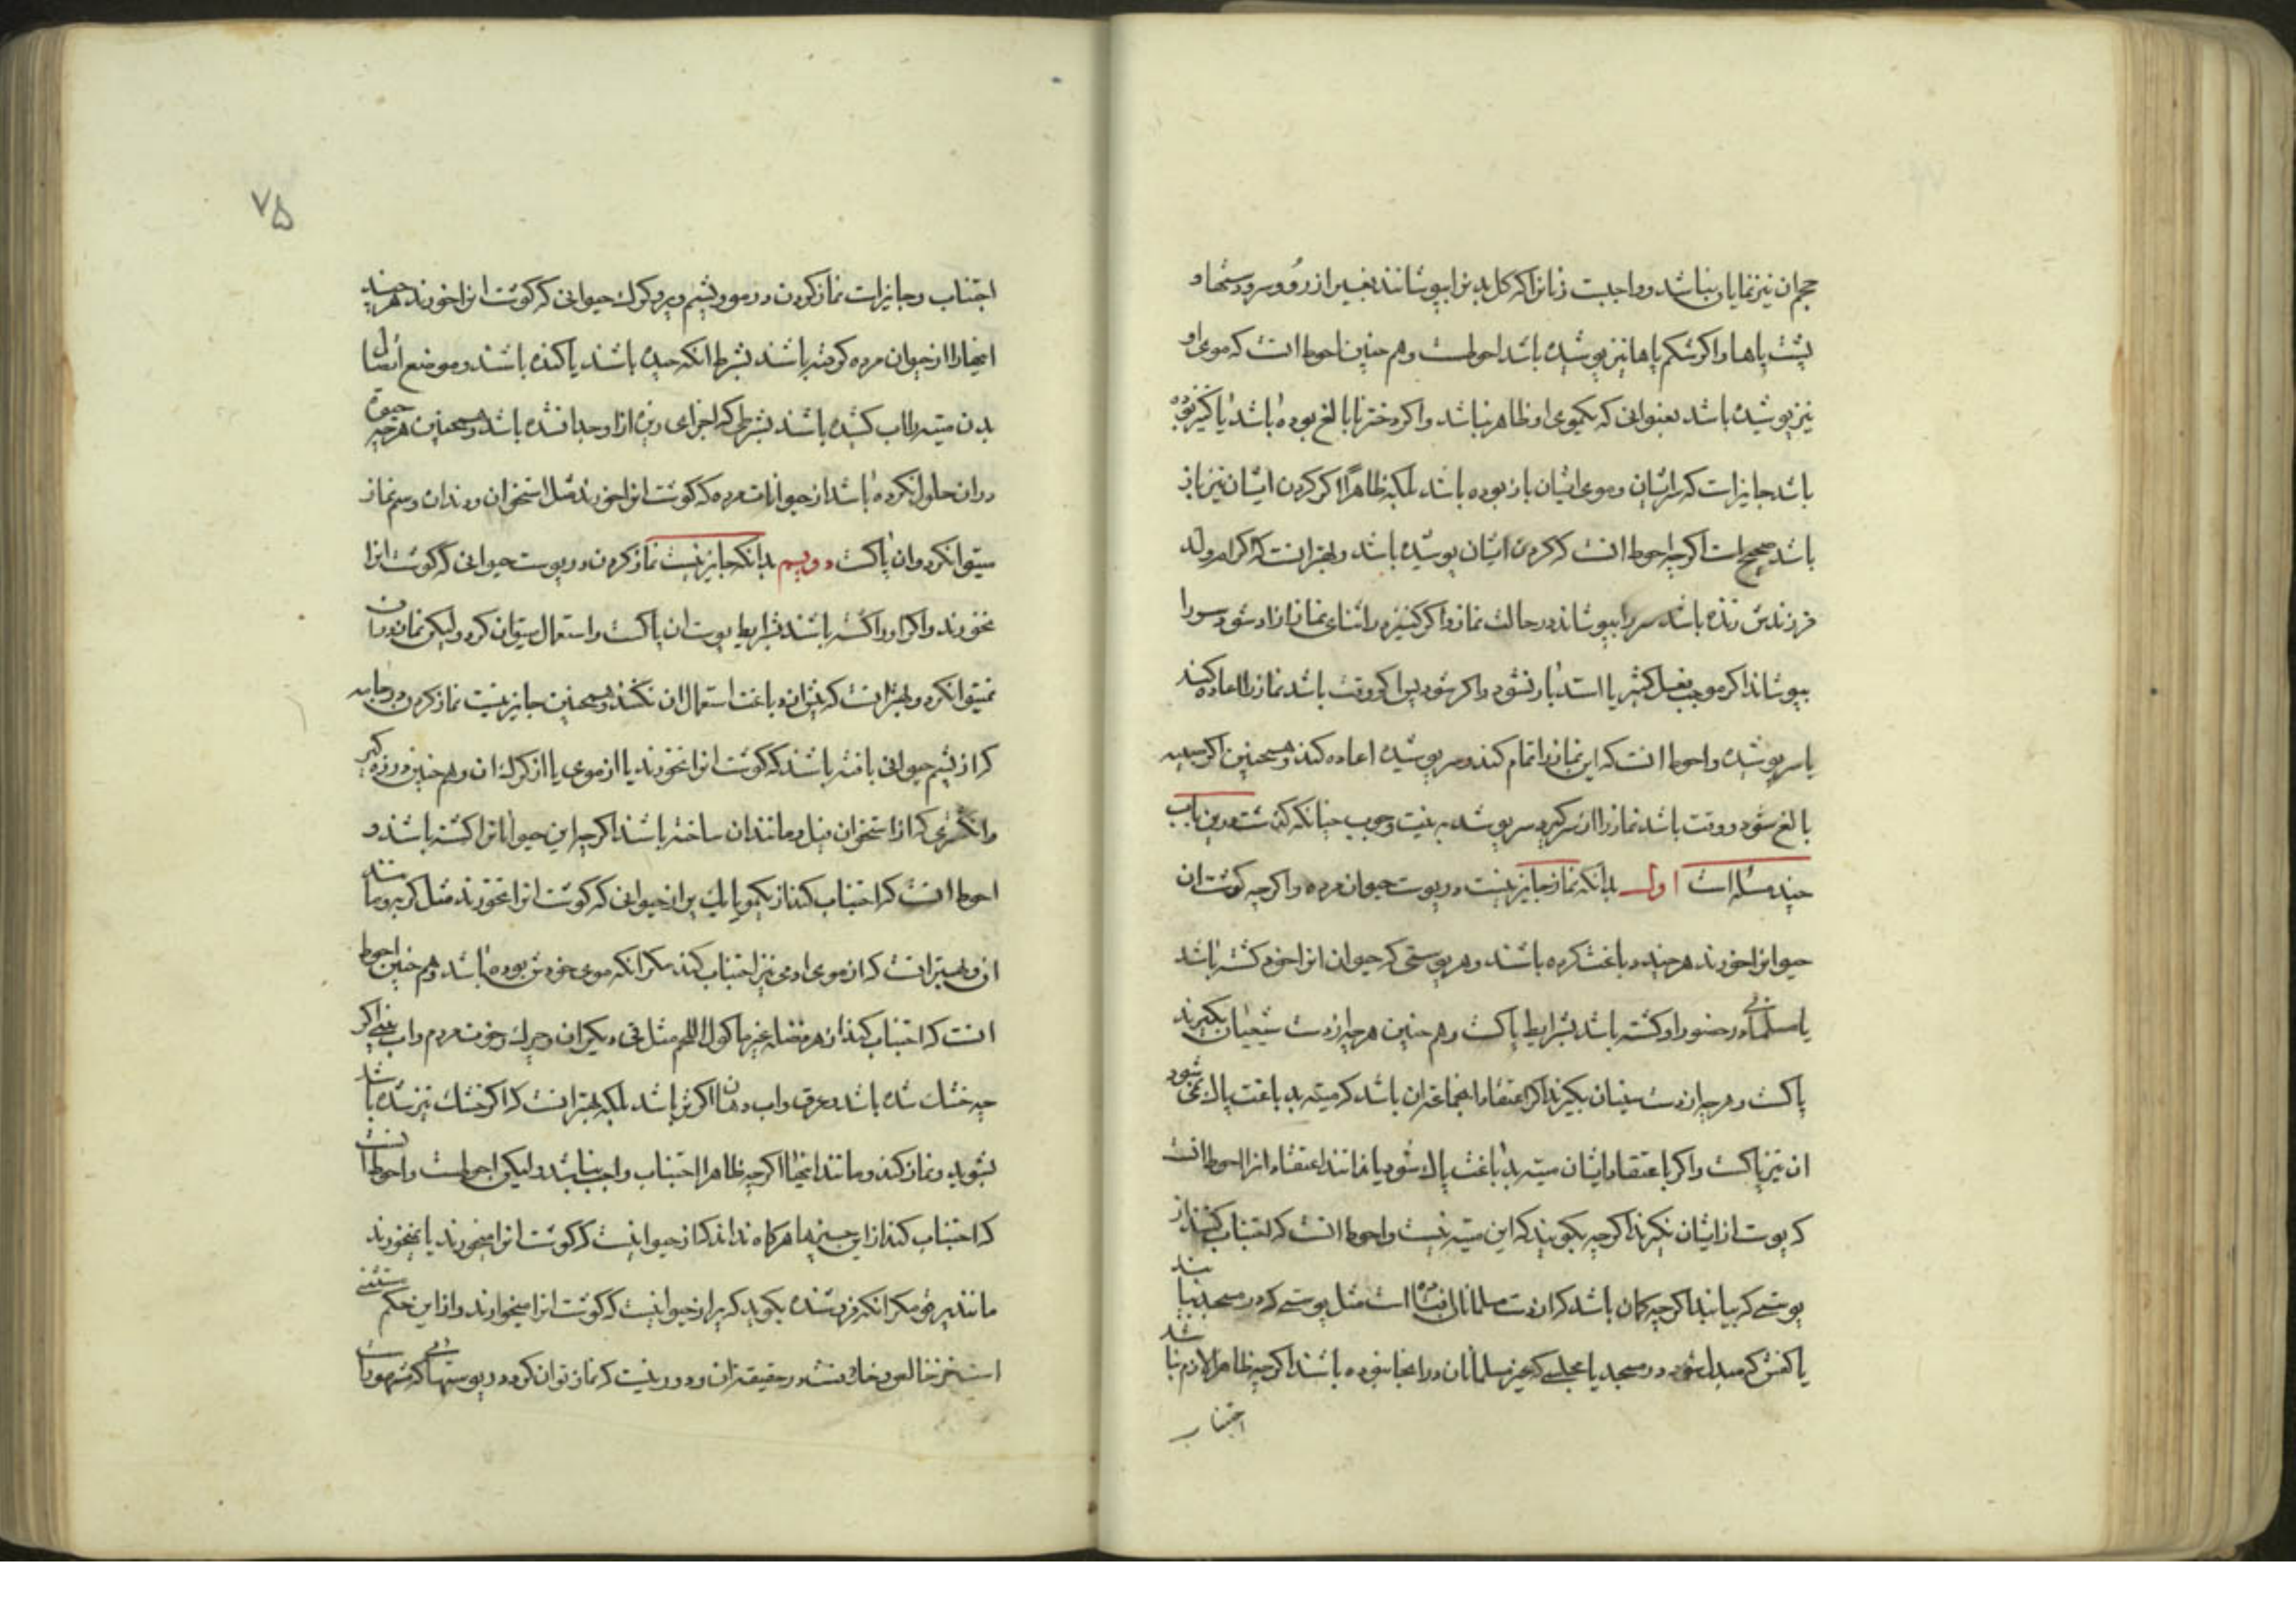 حجم ان نیز نمایان نباشد و واجبست زنانرا که کل بدنرا بپوشانند بغیر از رو و سر و دستها و
پشت پاها و اکر شکم پاها نیز پوشیده باشد احوطست و هم چنین احوط انست که موی او
نیز پوشیده باشد بعنوانی که یکموی او ظاهر نباشد و اکر دختر نابالغ بوده باشد یا کنیز بوده
باشد جایز است که سر ایشان و موی ایشان باز بوده باشد بلکه ظاهرًا اکر کردن ایشان نیز باز
باشد صحیح است اکر چه احوط انست که کردن ایشان پوشیده باشد و بهتر انست که اکر ام ولد
فرزندش زنده باشد سر را بپوشاند در حالت نماز و اکر کنیز در اثنای نماز ازاد شود سر را
بپوشاند اکر موجب فعل کثیر یا استدبار نشود و اکر شود پس اکر وقت باشد نماز را اعاده کند
با سر پوشیده و احوط انست که این نماز را تمام کند و سر پوشیده اعاده کند و همچنین اکر صبیه
بالغ شود و وقت باشد نماز را از سر کیرد سر پوشیده به نیت وجوب چنانکه کذشت و درین باب
چند مسئله است اول بدانکه نماز جایز نیست در پوست حیوان مرده و اکر چه کوشت ان
حیوانرا خورند هر چند دباغت کرده باشند و هر پوستی که حیوان انرا خود کشته باشد
یا مسلمانی در حضور او کشته باشد بشرایط پاکست و هم چنین هر چه از دست شیعیان بکیرند
پاکست و هر چه از دست سنیان بکیرند اکر اعتقاد انجماعت ان باشد که میته بدباغت پاک نمی شود
ان نیز پاکست و اکر باعتقاد ایشان میته بدباغت پاک شود یا ندانند اعتقاد انرا احوط انست
که پوست از ایشان نکیرند اکر چه بکویند که این میته نیست و احوط انست که اجتناب کنند از
پوستی که بیابند اکر چه کمان باشد که از دست مسلمانان افتاده است مثل پوستی که در مسجد بیابند
یا کفش که مبدل شود در مسجد یا مجلسی که غیر مسلمانان در انجا نبوده باشند اکر چه ظاهرا لازم نباشد
اجتناب
۷۵
اجتناب و جایز است نماز کردن در مو و پشم و پر و کرک حیوانی که کوشت انرا خورند هر چند
اینها را از حیوان مرده کرفته باشند بشرط انکه چیده باشند یا کنده باشند و موضع اتصال با
بدن میته را آب کشیده باشند بشرطی که اجزای ریزه از او جدا نشده باشد و همچنین هر چه حیوة
در ان حلول نکرده باشد از حیوانات مرده که کوشت انرا خورند مثل استخوان و دندان و سم نماز
میتوان کرد و ان پاکست دویم بدانکه جایز نیست نماز کردن در پوست حیوانی که کوشت انرا
نخورند و اکر او را کشته باشند بشرایط پوست ان پاکست و استعمال میتوان کرد و لیکن نماز در ان
نمیتوان کرد و بهتر انست که پیش از دباغت استعمال ان نکنند و همچنین جایز نیست نماز کردن در جامه
که از پشم حیوانی بافته باشند که کوشت انرا نخورند یا از موی یا از کرک ان و هم چنین در زه کیر
و انکشتری که از استخوان فیل و مانند ان ساخته باشند اکر چه این حیوانرا کشته باشند و
احوط انست که اجتناب کند از یکمو یا یک پر از حیوانی که کوشت انرا نخورند مثل کربه و مانند
ان و بهتر انست که از موی ادمی نیز اجتناب کند مکر انکه موی خودش بوده باشد و هم چنین احوط
انست که اجتناب کند از هر فضله غیر ماکول اللحم مثل قی دیکران و چرک و خون مردم و اب بینی اکر
چه خشک شده باشد و عرق و اب دهان اکر تر باشد بلکه بهتر انست که اکر خشک نیز شده باشد
بشوید و نماز کند و مانند اینها اکر چه ظاهرا اجتناب واجب نباشد و لیکن احوطست و احوط انست
که اجتناب کند از این چیزها هر کاه نداند که از حیوانیست که کوشت انرا میخورند یا نمیخورند
مانند پر قو مکر انکه فروشنده بکوید که پر از حیوانیست که کوشت انرا میخورند و از این حکم مستثنی
است خز خالص در حقیقت ان و دور نیست که نماز توان کرد در پوستهائی که مشهور است